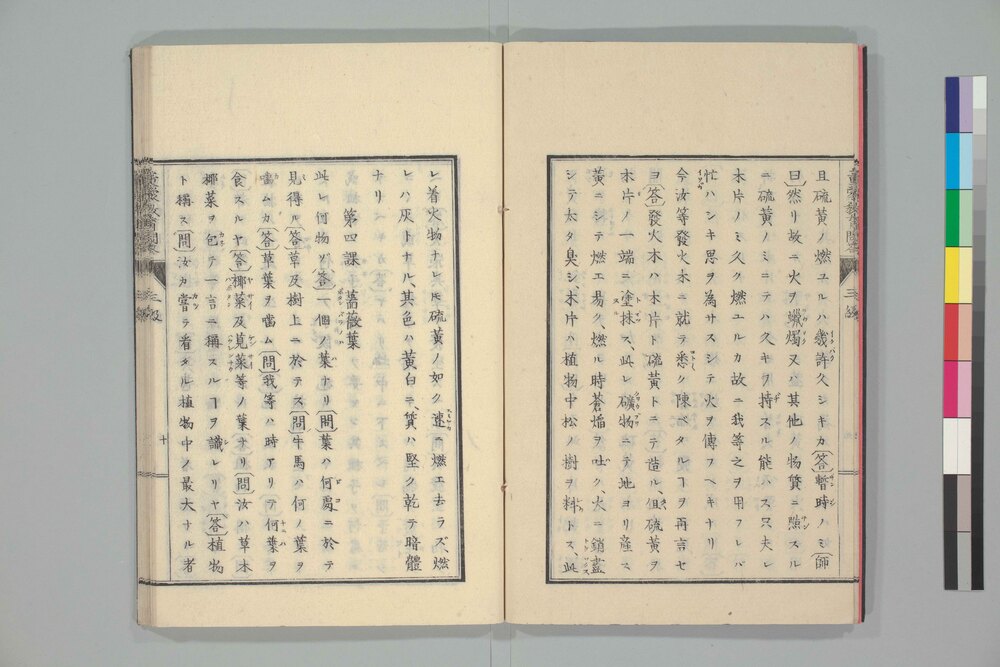 且硫黄ノ燃ユルハ幾許久シキカ〔答〕暫時ノミ〔師
曰〕然リ故ニ火ヲ蠟燭又ハ其他ノ物質ニ點スル
ニ硫黄ノミニテハ久キヲ持スル能ハス只夫レ
木片ノミ久ク燃ユルカ故ニ我等之ヲ用フレバ
忙ハシキ思ヲ為サスシテ火ヲ傳フヘキナリ
今汝等發火木ニ就テ悉ク陳ベタルヿヲ再言セ
ヨ〔答〕發火木ハ木片ト硫黄トニテ造ル、但硫黄ヲ
木片ノ一端ニ塗抹ス、此レ礦物ニテ地ヨリ産ス
黄ニシテ燃エ易ク、燃ル時蒼焔ヲ吐ク、火ニ銷盡
シテ太タ臭シ、木片ハ植物中松ノ樹ヲ料トス、此
レ着火物ナレ𪜈硫黄ノ如ク速ニ燃エ去ラズ、燃
ヒハ灰トナル、其色ハ黄白ニ、質ハ堅ク乾テ暗體
ナリ
第四課 薔薇葉
此レ何物ソ〔答〕一個ノ葉ナリ〔問〕葉ハ何處ニ於テ
見得ル〔答〕草及樹上ニ於テス〔問〕牛馬ハ何ノ葉ヲ
噛ムカ〔答〕草葉ヲ噛ム〔問〕我等ハ時アリテ何葉ヲ
食スルヤ〔答〕椰菜及莧菜等ノ葉ナリ〔問〕汝ハ草木
椰菜ヲ包テ一言ニ稱スルヿヲ識レリヤ〔答〕植物
ト稱ス〔問〕汝カ嘗ラ看タル植物中ノ最大ナル者
十